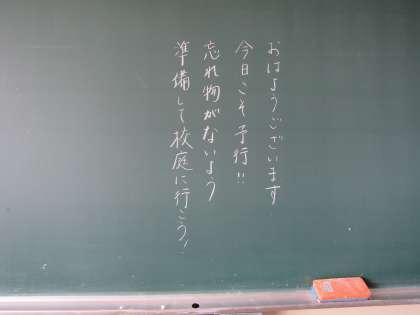 おはようございます
今日こそ予行!!
忘れ物がないよう
準備して校庭に行こう!